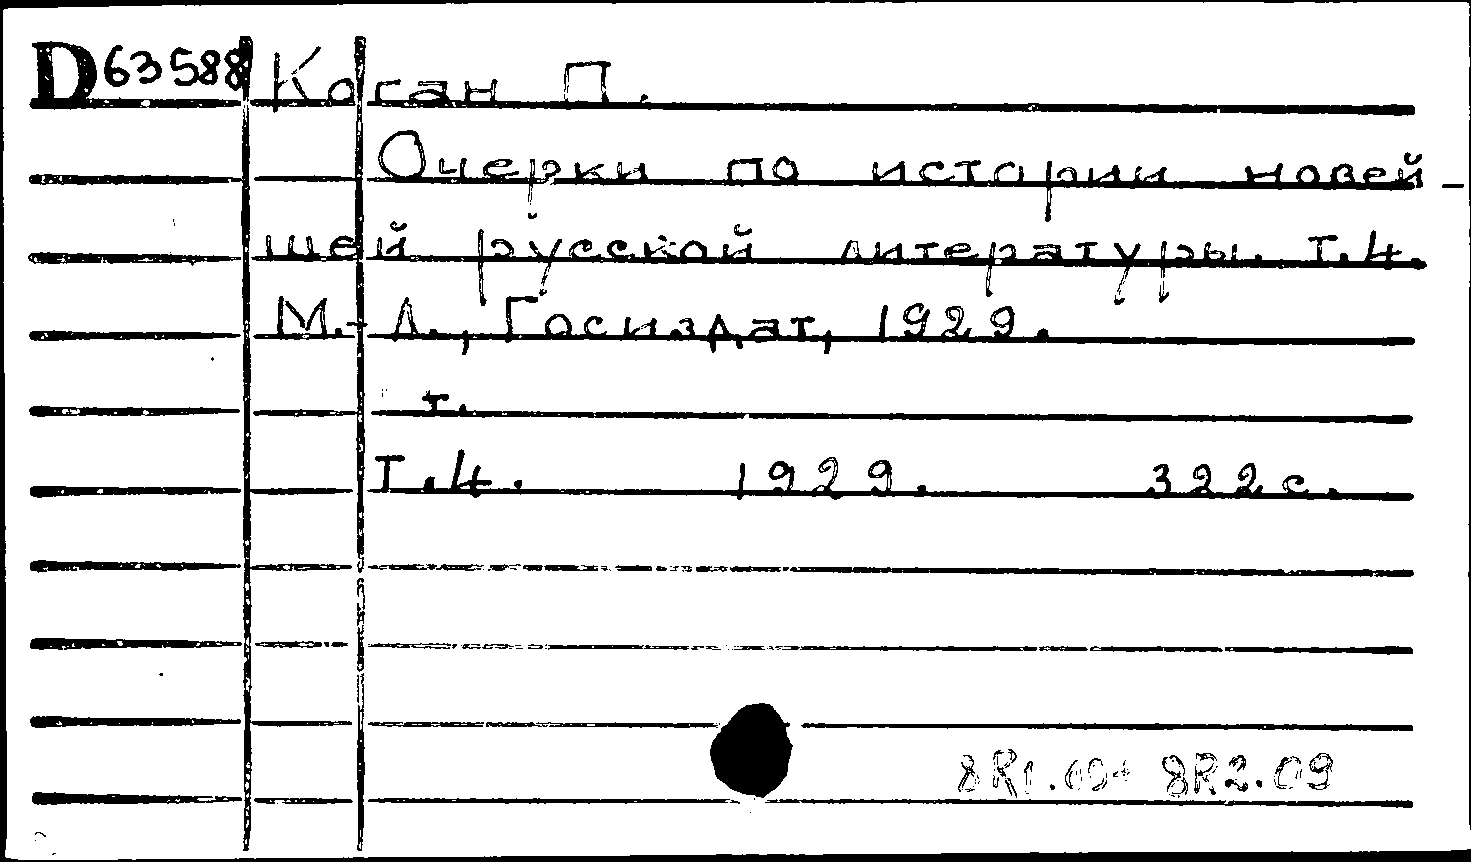 D 63588 Коган П.
Очерки по истории новей-
шей русской литературы. Т.4.
М.-Л., Госиздат, 1929.
т.
Т.4. 1929. 322 с.
8R1.09+ 8R2.09